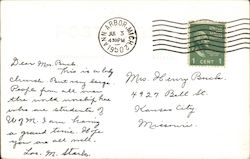 ANN ARBOR, MICH.
JUL 3
4 30 PM
1950
1 CENT 1
Dear Mrs. Buck
This is a lovely
church. But very large.
People from all over
the world worship here
who are students of
U of M. I am having
a grand time. Hope
you are all well.
M. Starks
Mrs. Henry Buck.
4927 Bell St
Kansas City
Missouri